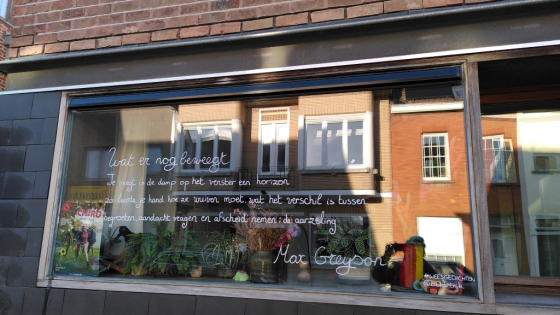 Wat er nog beweegt
Je veegt is de damp op het venster een horizon
zo leerde je hand hoe ze wuiven moet, wat het verschil is tussen
begroeten, aandacht vragen en afscheid nemen: de aarzeling
Max Greyson
CAIRO
#WEESGEDICHTEN